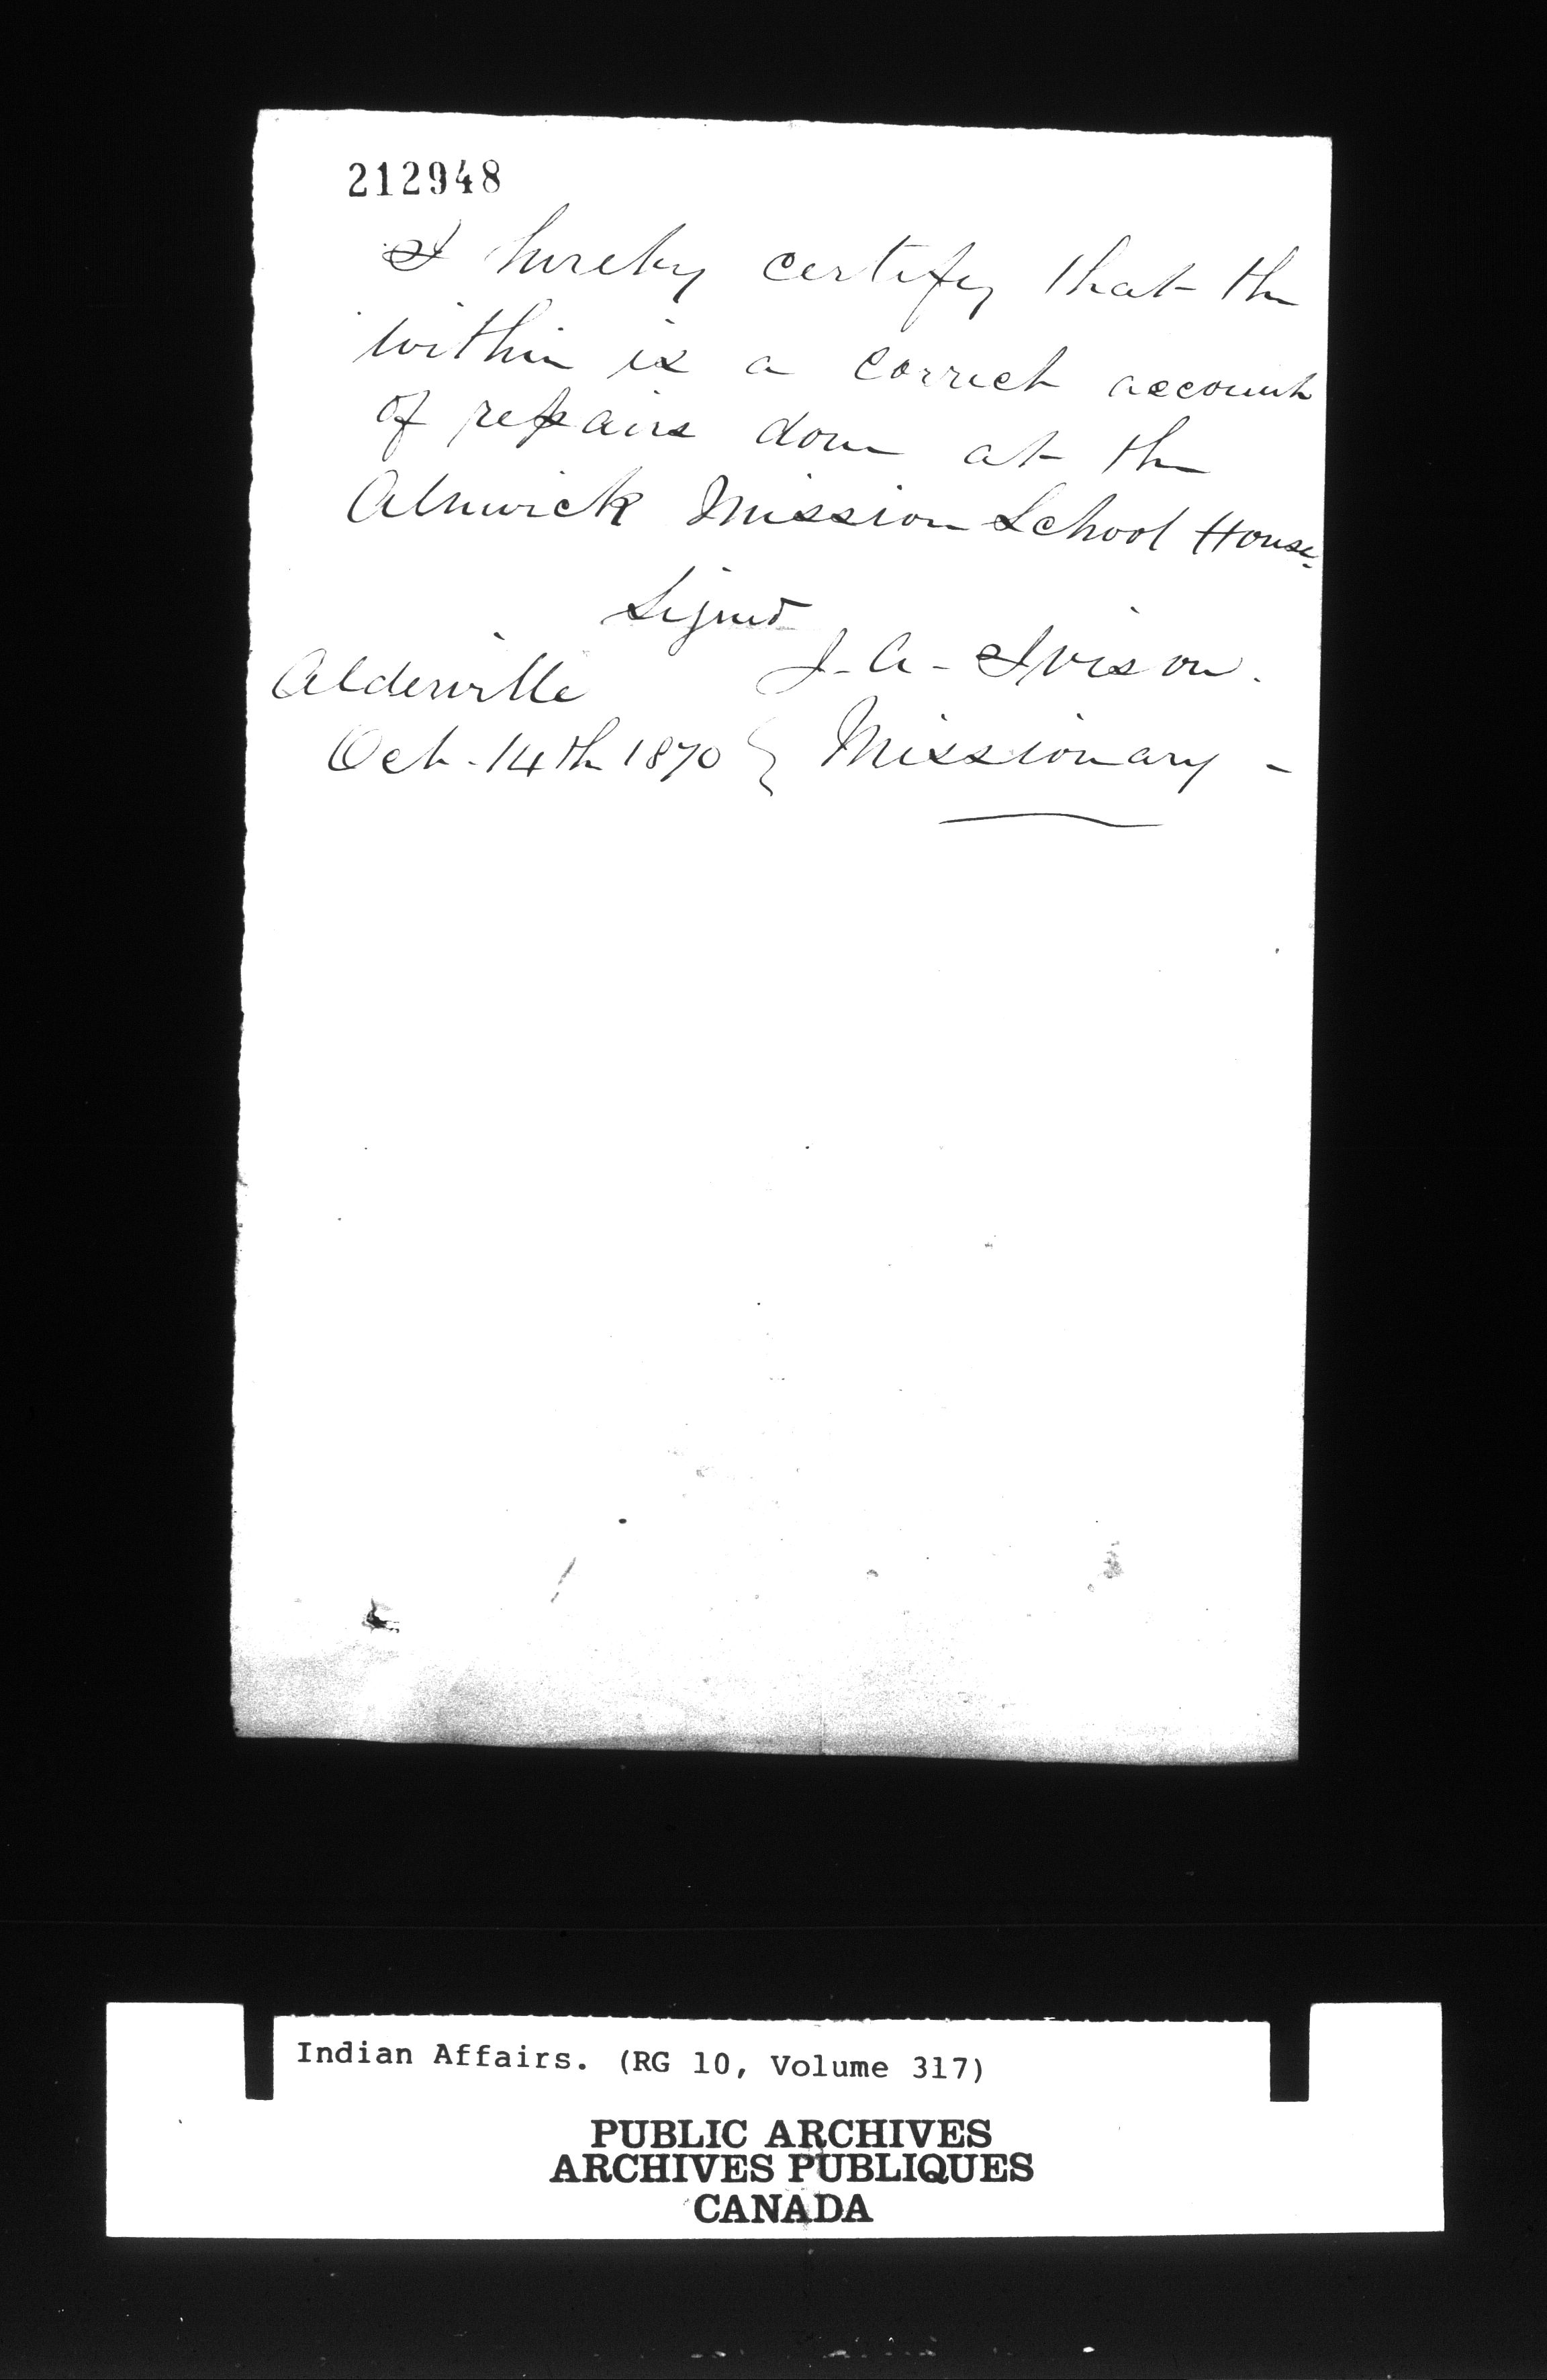 212948
I hereby certify that the
within is a correct account
of repairs done at the
Alnwick Mission School House.
Signed
J. A. Ivison.
Alderville
Oct. 14th 1870 } Missionary -
Indian Affairs. (RG 10, Volume 317)
PUBLIC ARCHIVES
ARCHIVES PUBLIQUES
CANADA